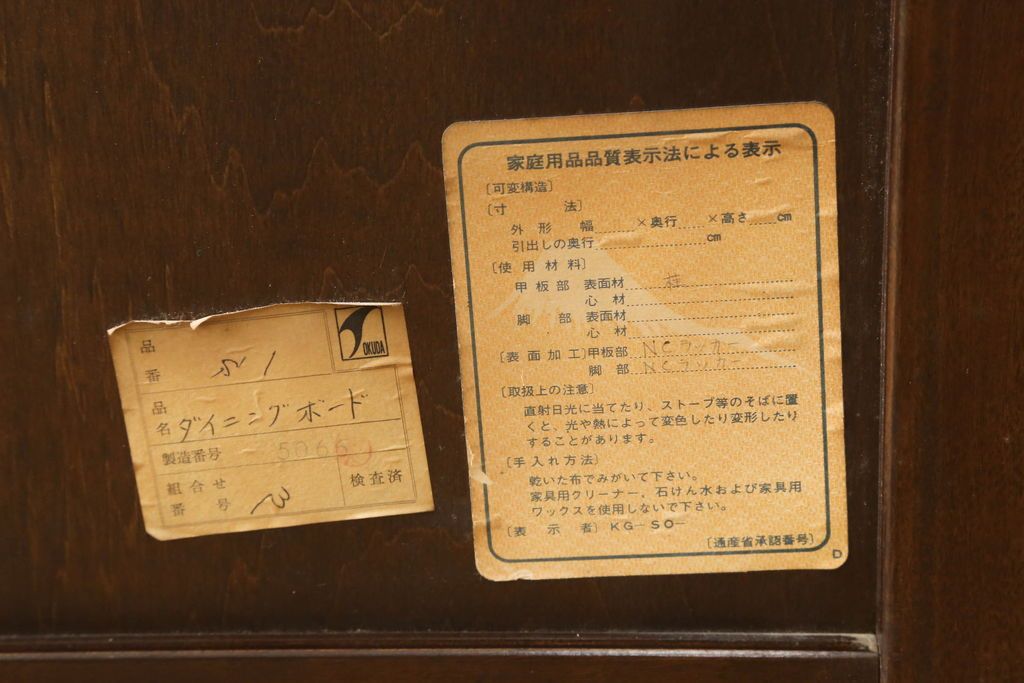 品番
OKUDA
品名 ダイニングボード
製造番号 50660
組合せ番号
検査済
家庭用品品質表示法による表示
〔可変構造〕
〔寸 法〕
外形 幅 ×奥行 ×高さ cm
引出しの奥行 cm
〔使用材料〕
甲板部 表面材
心材
脚部 表面材
心材
〔表面加工〕甲板部 NCラッカー
脚部 NCラッカー
〔取扱上の注意〕
直射日光に当てたり、ストーブ等のそばに置
くと、光や熱によって変色したり変形したり
することがあります。
〔手入れ方法〕
乾いた布でみがいて下さい。
家具用クリーナー、石けん水および家具用
ワックスを使用しないで下さい。
〔表示者〕KG-SO-
〔通産省承認番号〕
D